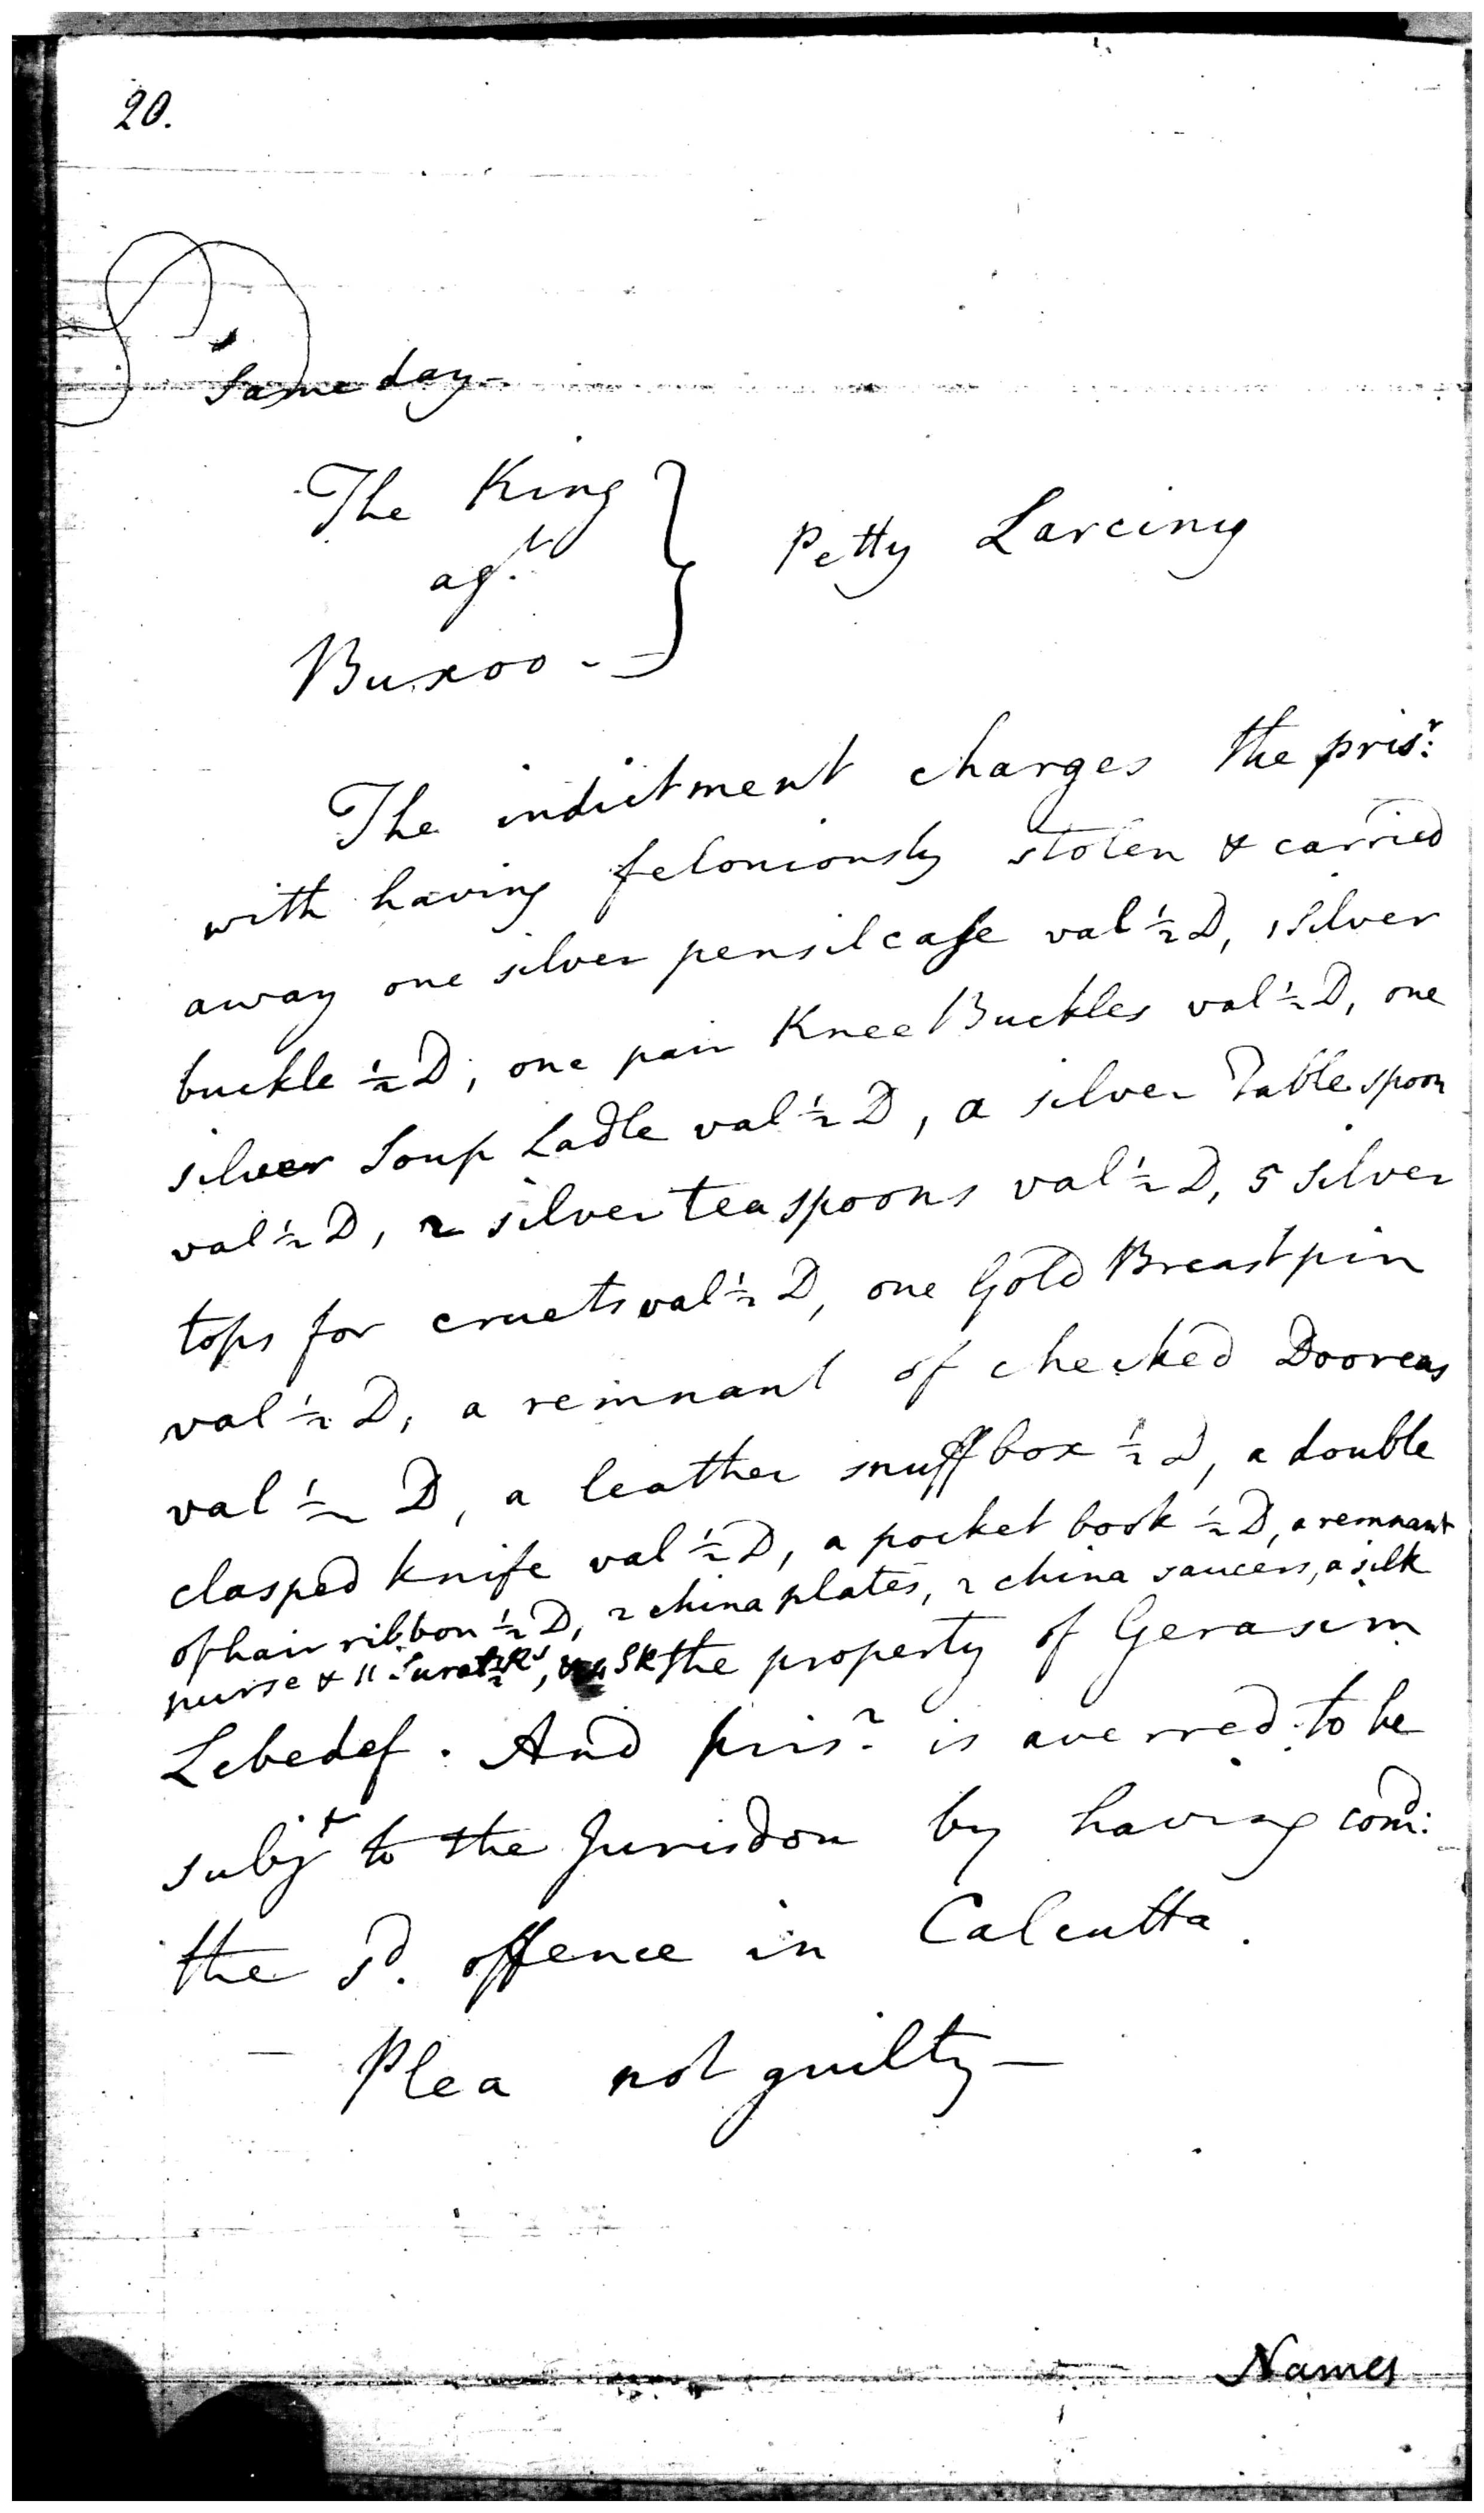 20.
Same day-
The King
agt.
Buxoo - -
Petty Larciny
The indictment charges the prisr:
with having feloniously stolen & carried
away one silver pensilcase val ½ D, 1 silver
buckle ½ D, one pair Knee Buckles val ½ D, one
silver Soup Ladle val ½ D, a silver Table spoon
val ½ D, 2 silver tea spoons val ½ D, 5 silver
tops for cruets val ½ D, one Gold Breastpin
val ½ D, a remnant of checked Dooreas
val ½ D, a leather snuff box ½ D, a double
clasped knife val ½ D, a pocket book ½ D, a remnant
of hair ribbon ½ D, 2 china plates, 2 china saucers, a silk
purse & 11 Surat the property of Gerasim
Lebedef. And prisr. is averred to be
subjt to the Jurisdon by having comd:
the sd. offence in Calcutta.
- Plea not guilty -
Names